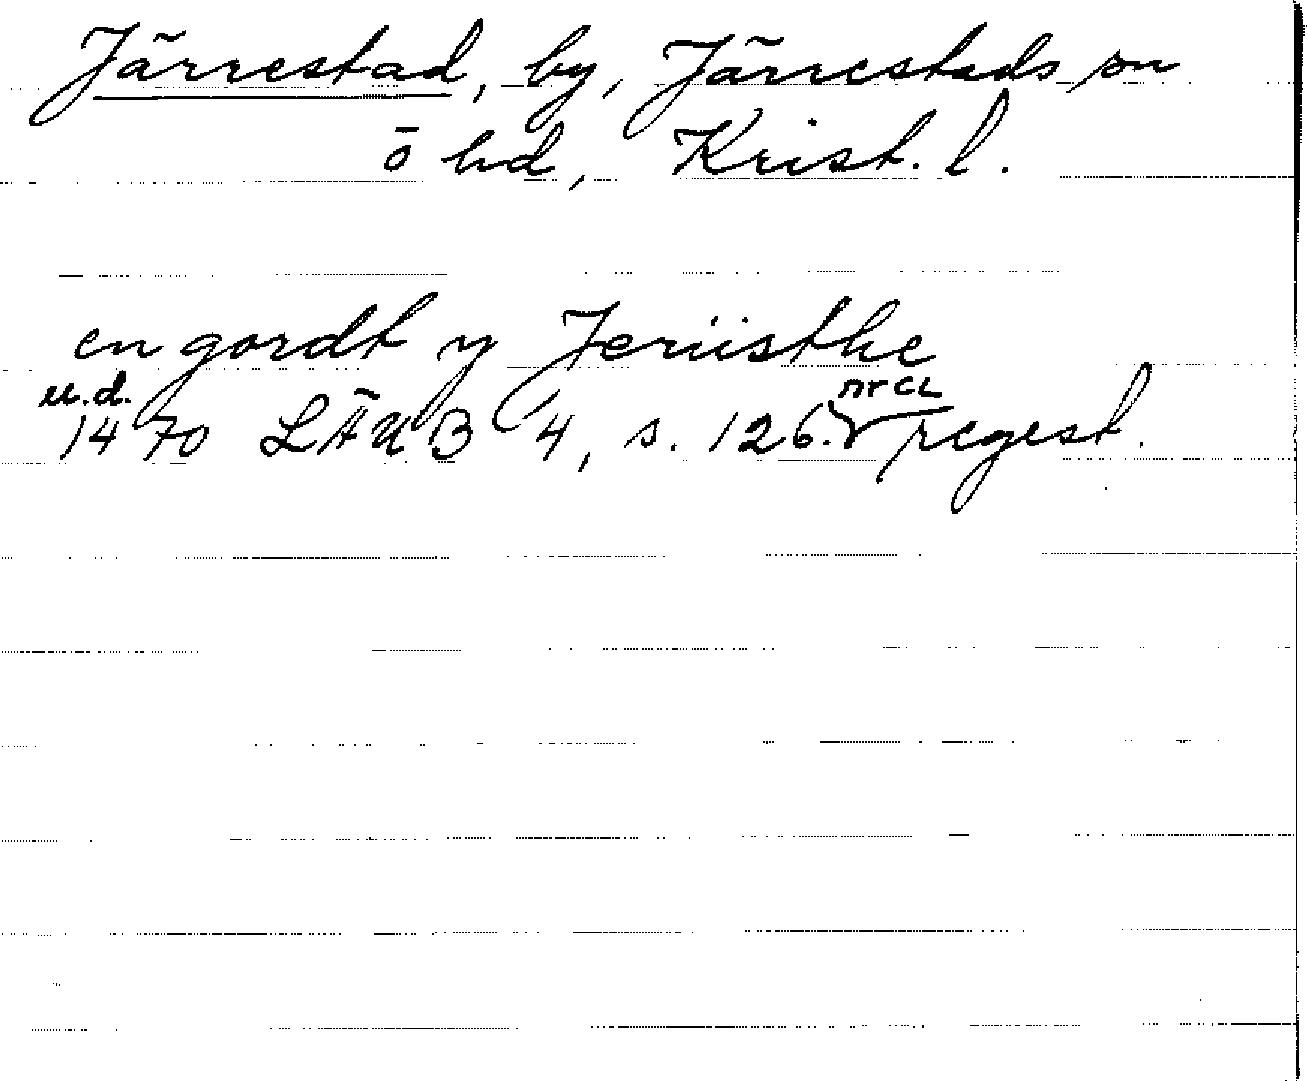 Järrestad, by, Järrestads sn
ö hd, Krist. l.
en gordt y Jeriisthe
u.d. nr CL
1470 LÄUB 4, s. 126. regest.